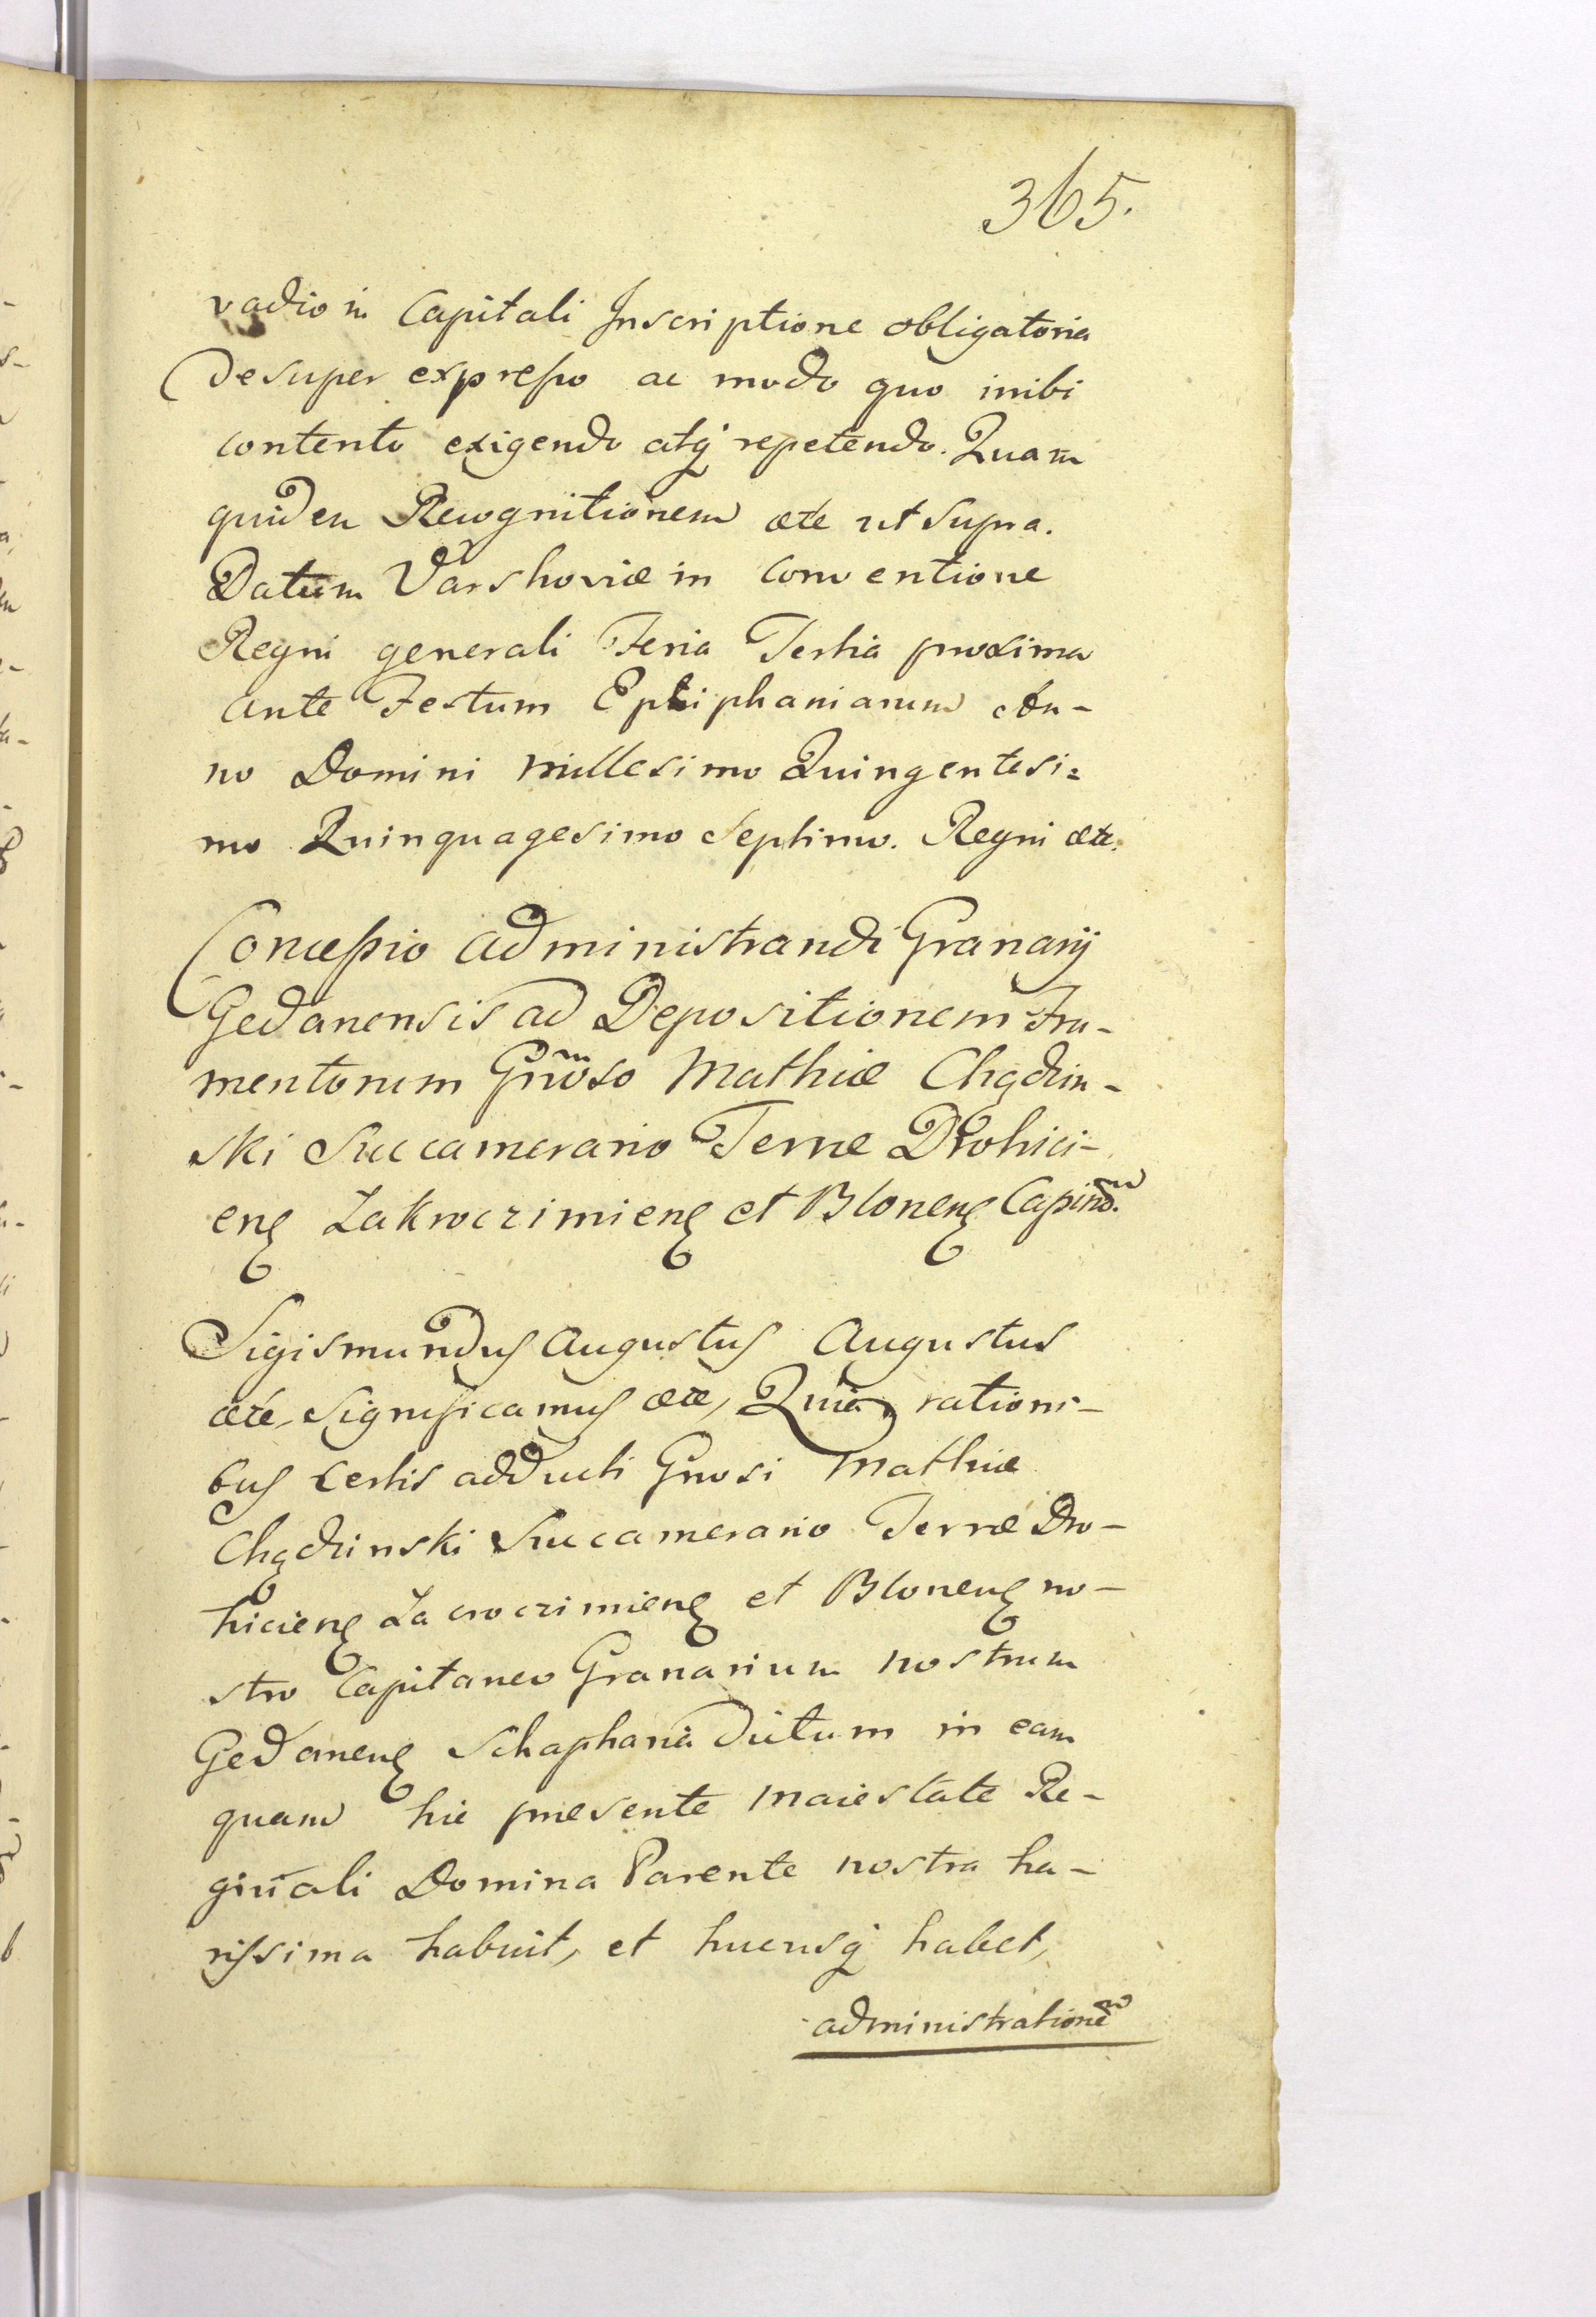 365.
vadio in Capitali Inscriptione obligatoria
desuper expresso ac modo quo inibi
contento exigendo atq repetendo. Quam
quidem Recognitionem etc ut supra.
Datum Varshoviæ in Conventione
Regni generali Feria Tertia proxima
ante Festum Ephiphaniarum An-
no Domini Millesimo Quingentesi=
mo Quinquagesimo Septimo. Regni etc.
Concessio administrandi Granarij
Gedanensis ad Depositionem Fru-
mentorum Gnoso Mathiæ Chądzin-
ski Succamerario Terræ Drohici-
eñ Zakroczimieñ et Bloneñ Capino.
Sigismundus Augustus Augustus
etc, Significamus etc, Quia rationi-
bus certis adducti Gnosi Mathiæ
Chądzinski Succamerario Terræ Dro-
hicieñ Zacroczimieñ et Bloneñ no-
stro Capitaneo Granarium nostrum
Gedaneñ Schaphania dictum in eam
quam hic præsente Maiestate Re-
ginali Domina Parente nostra ha-
rissima habuit, et hucusq habet,
administrationem